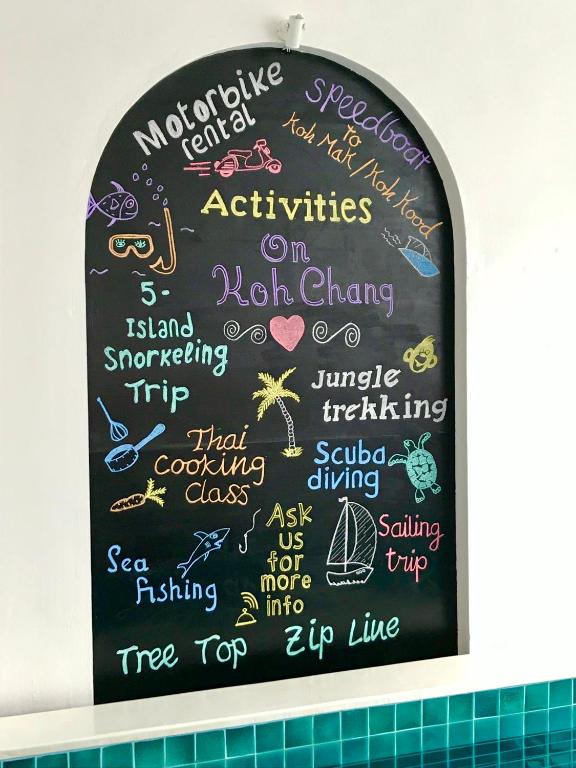 Motorbike
rental
speedboat
to
Koh Mak/Koh Kood
Activities
On
Koh Chang
5-
Island
Snorkeling
Trip
Jungle
trekking
Thai
Cooking
Class
Scuba
diving
Ask
us
for
more
info
Sailing
trip
Sea
fishing
Tree Top Zip Line